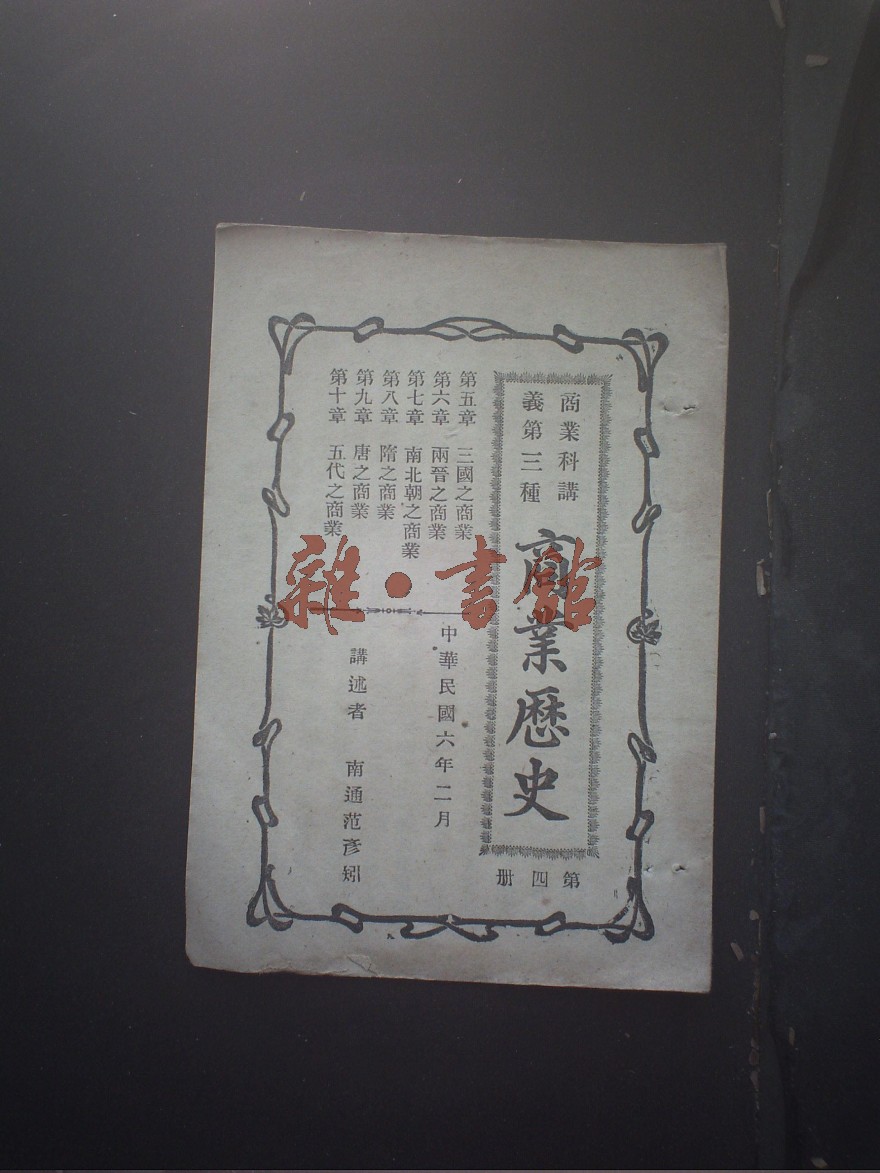 商業科講
義第三種
商業歷史
第四册
第五章 三國之商業
第六章 兩晉之商業
第七章 南北朝之商業
第八章 隋之商業
第九章 唐之商業
第十章 五代之商業
中華民國六年二月
講述者 南通范彥矧
雜·書館